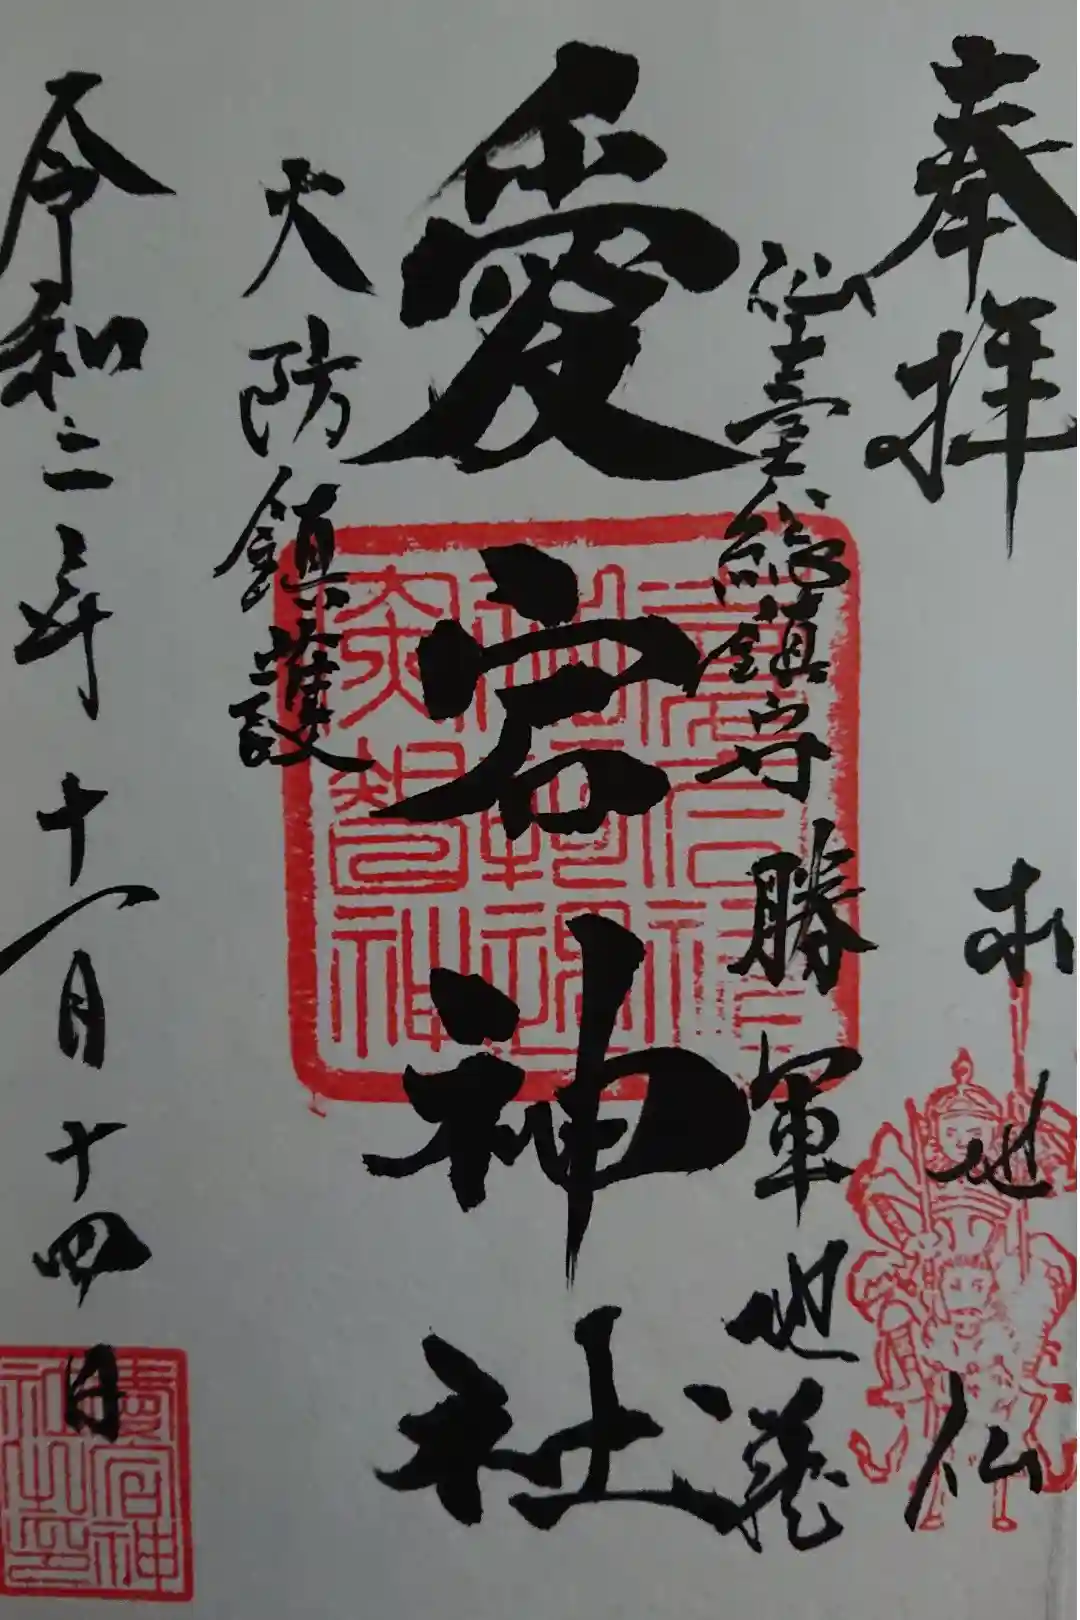 奉拝
本地仏
仙臺総鎮守
勝軍地蔵
愛宕神社
火防鎮護
令和二年十一月十四日
愛宕神社之印